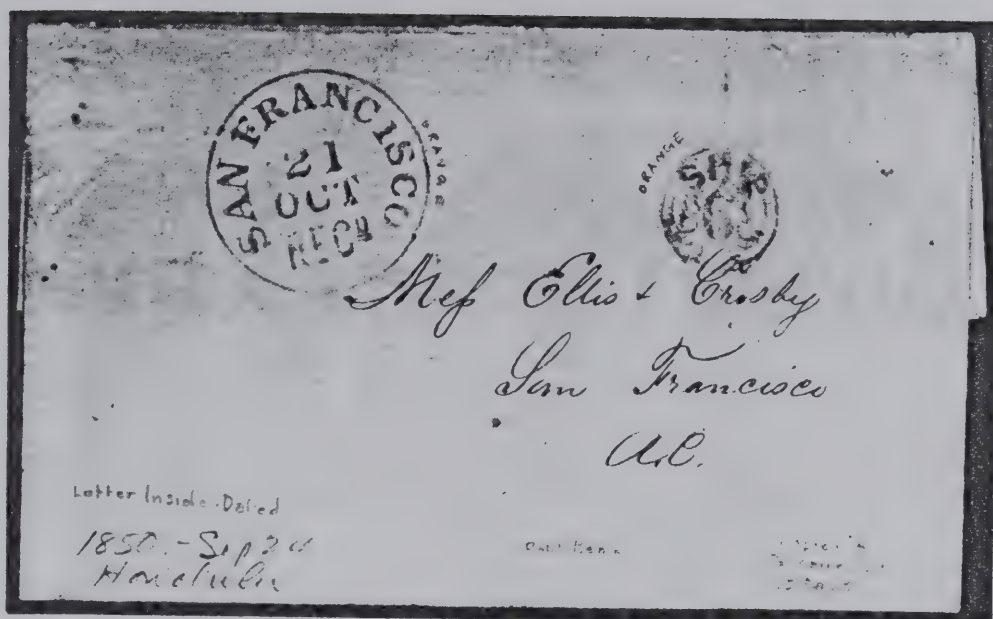 SAN FRANCISCO
21
OCT
REC^D
ORANGE
ORANGE
SHIP
Mess Ellis & Crosby
San Francisco
U.C.
Letter Inside Dated
1850 - Sep
Honolulu